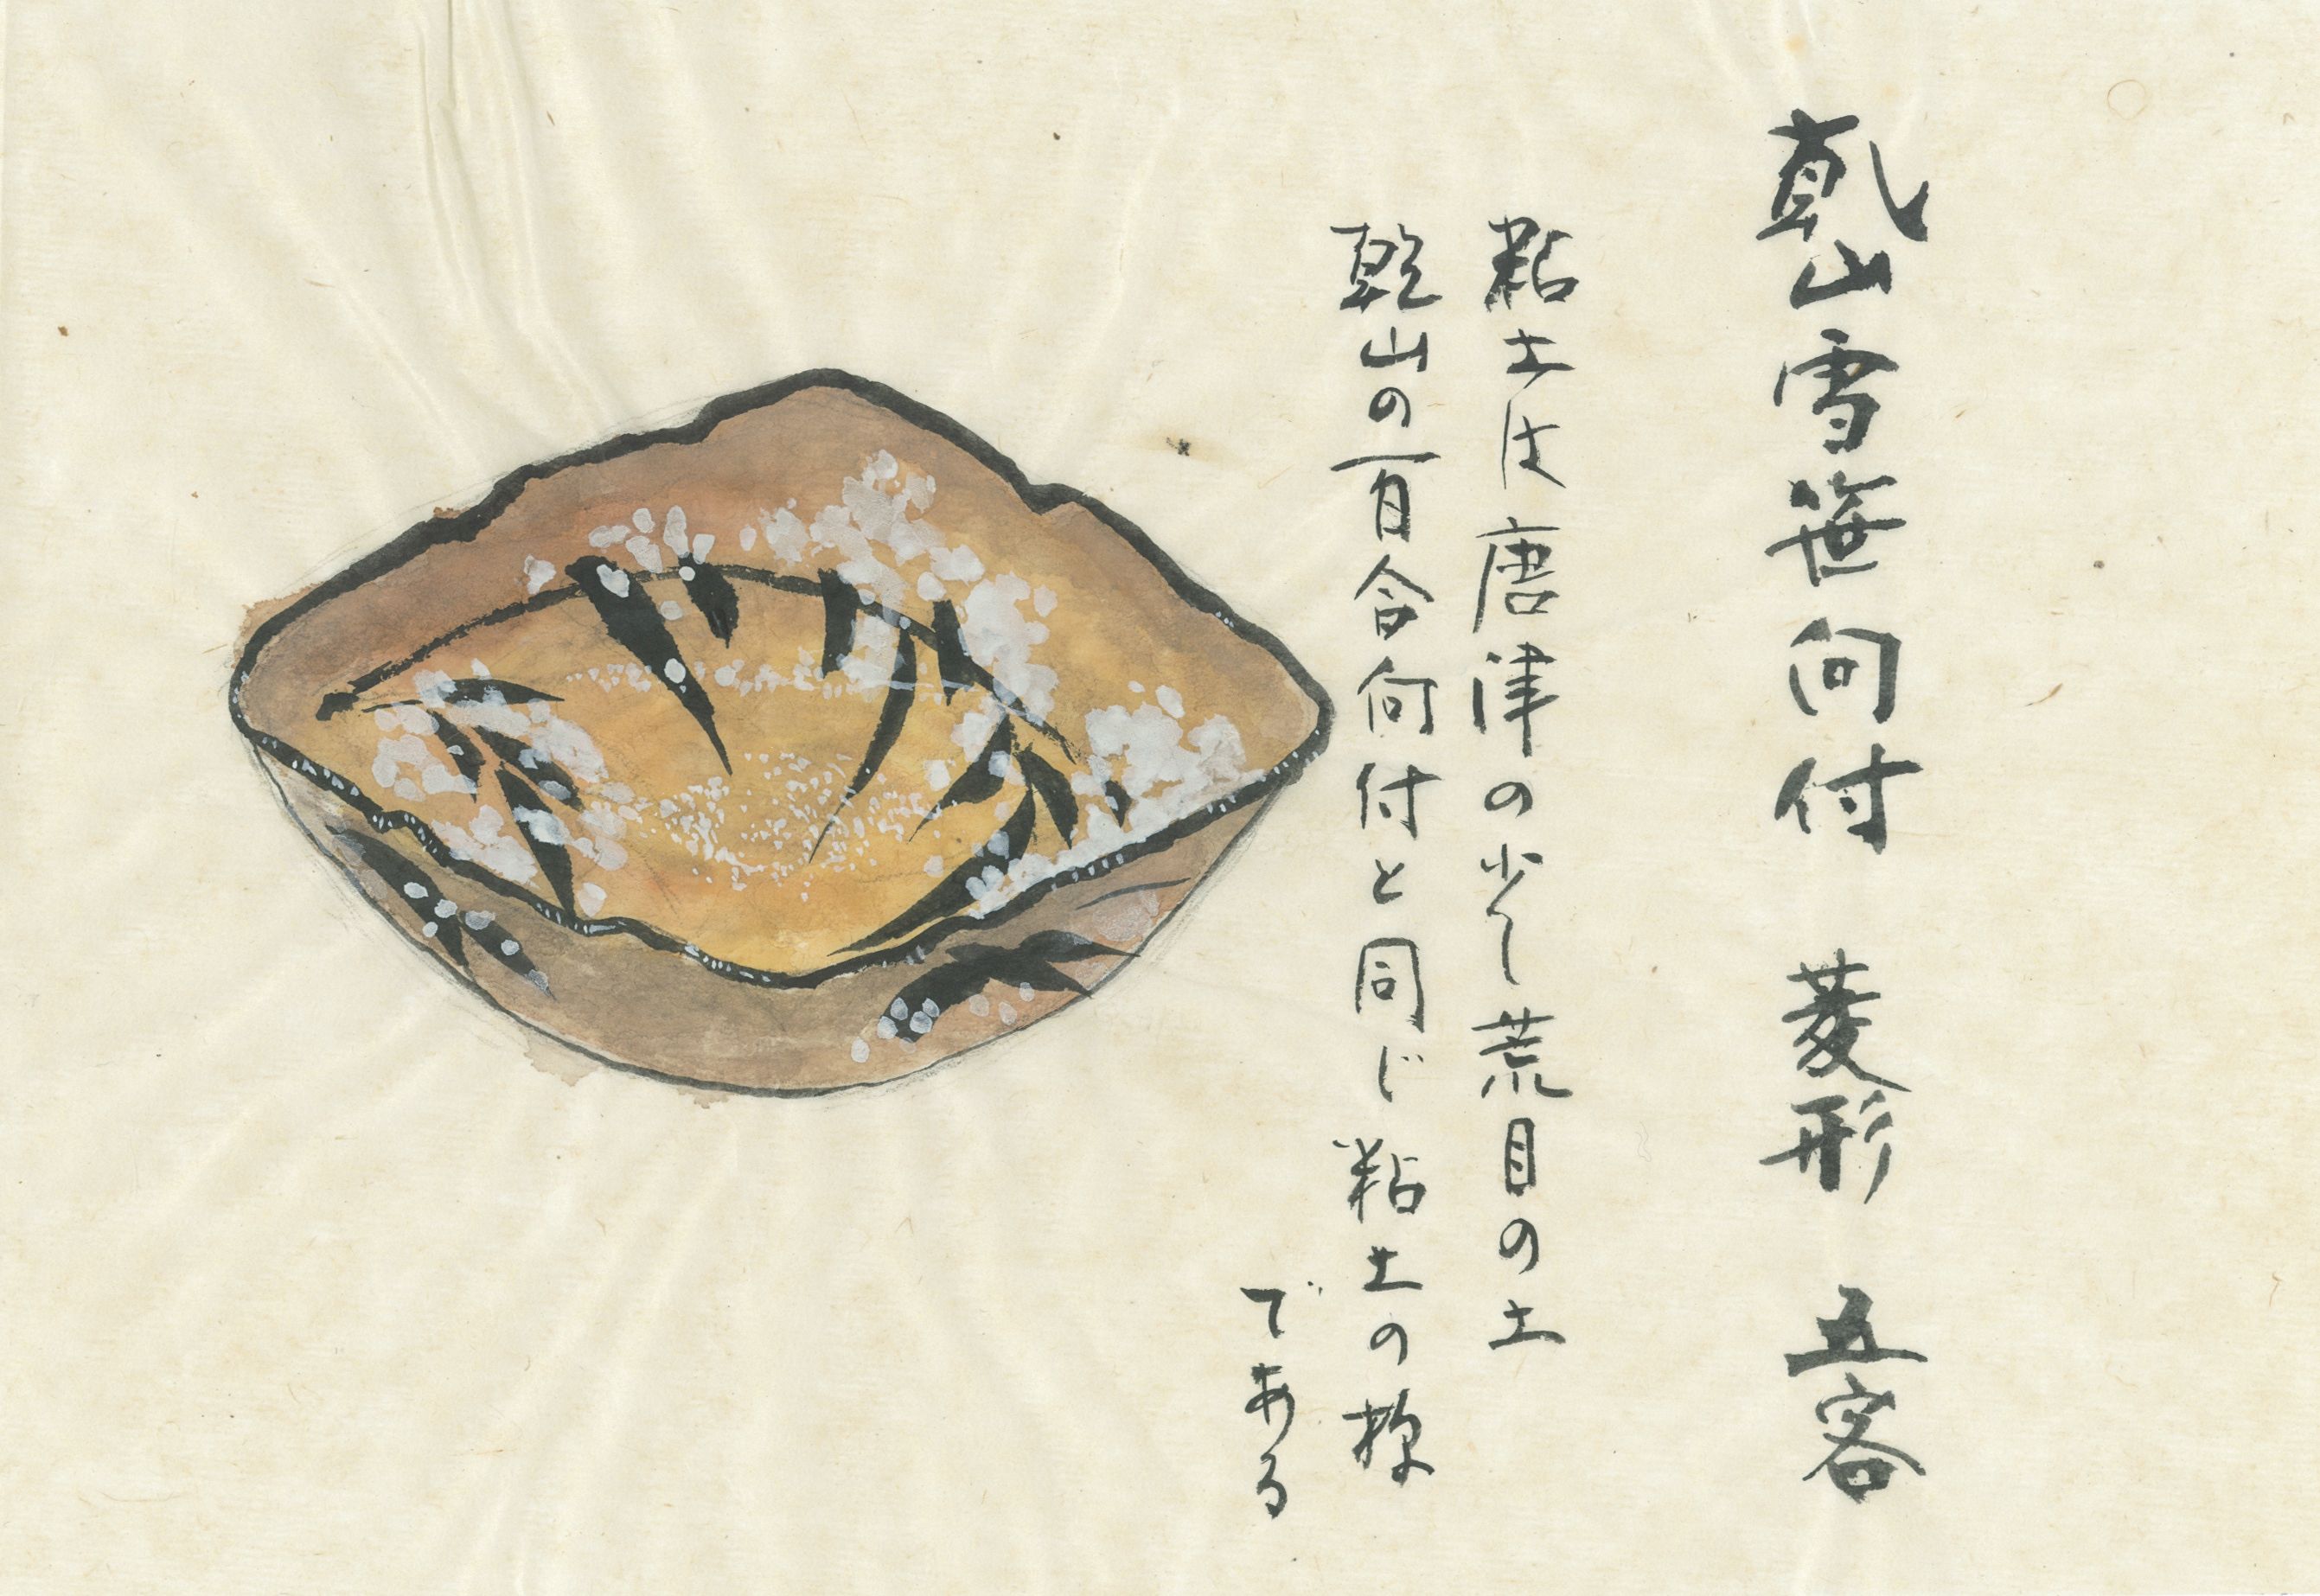 乾山雪笹向付 菱形 五客
粘土は唐津の少し荒目の土
乾山の百合向付と同じ粘土の様
である